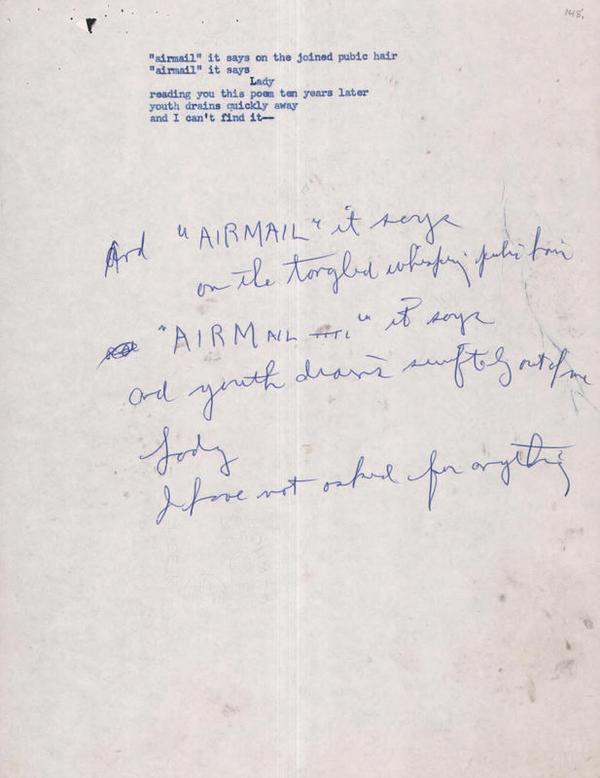 148.
"airmail" it says on the joined pubic hair
"airmail" it says
Lady
reading you this poem ten years later
youth drains quickly away
and I can't find it—
And "AIRMAIL" it says
on the tangled whispering pubic hair
"AIRMAIL" it says
and youth drains swiftly out of me
Lady
I have not asked for anything